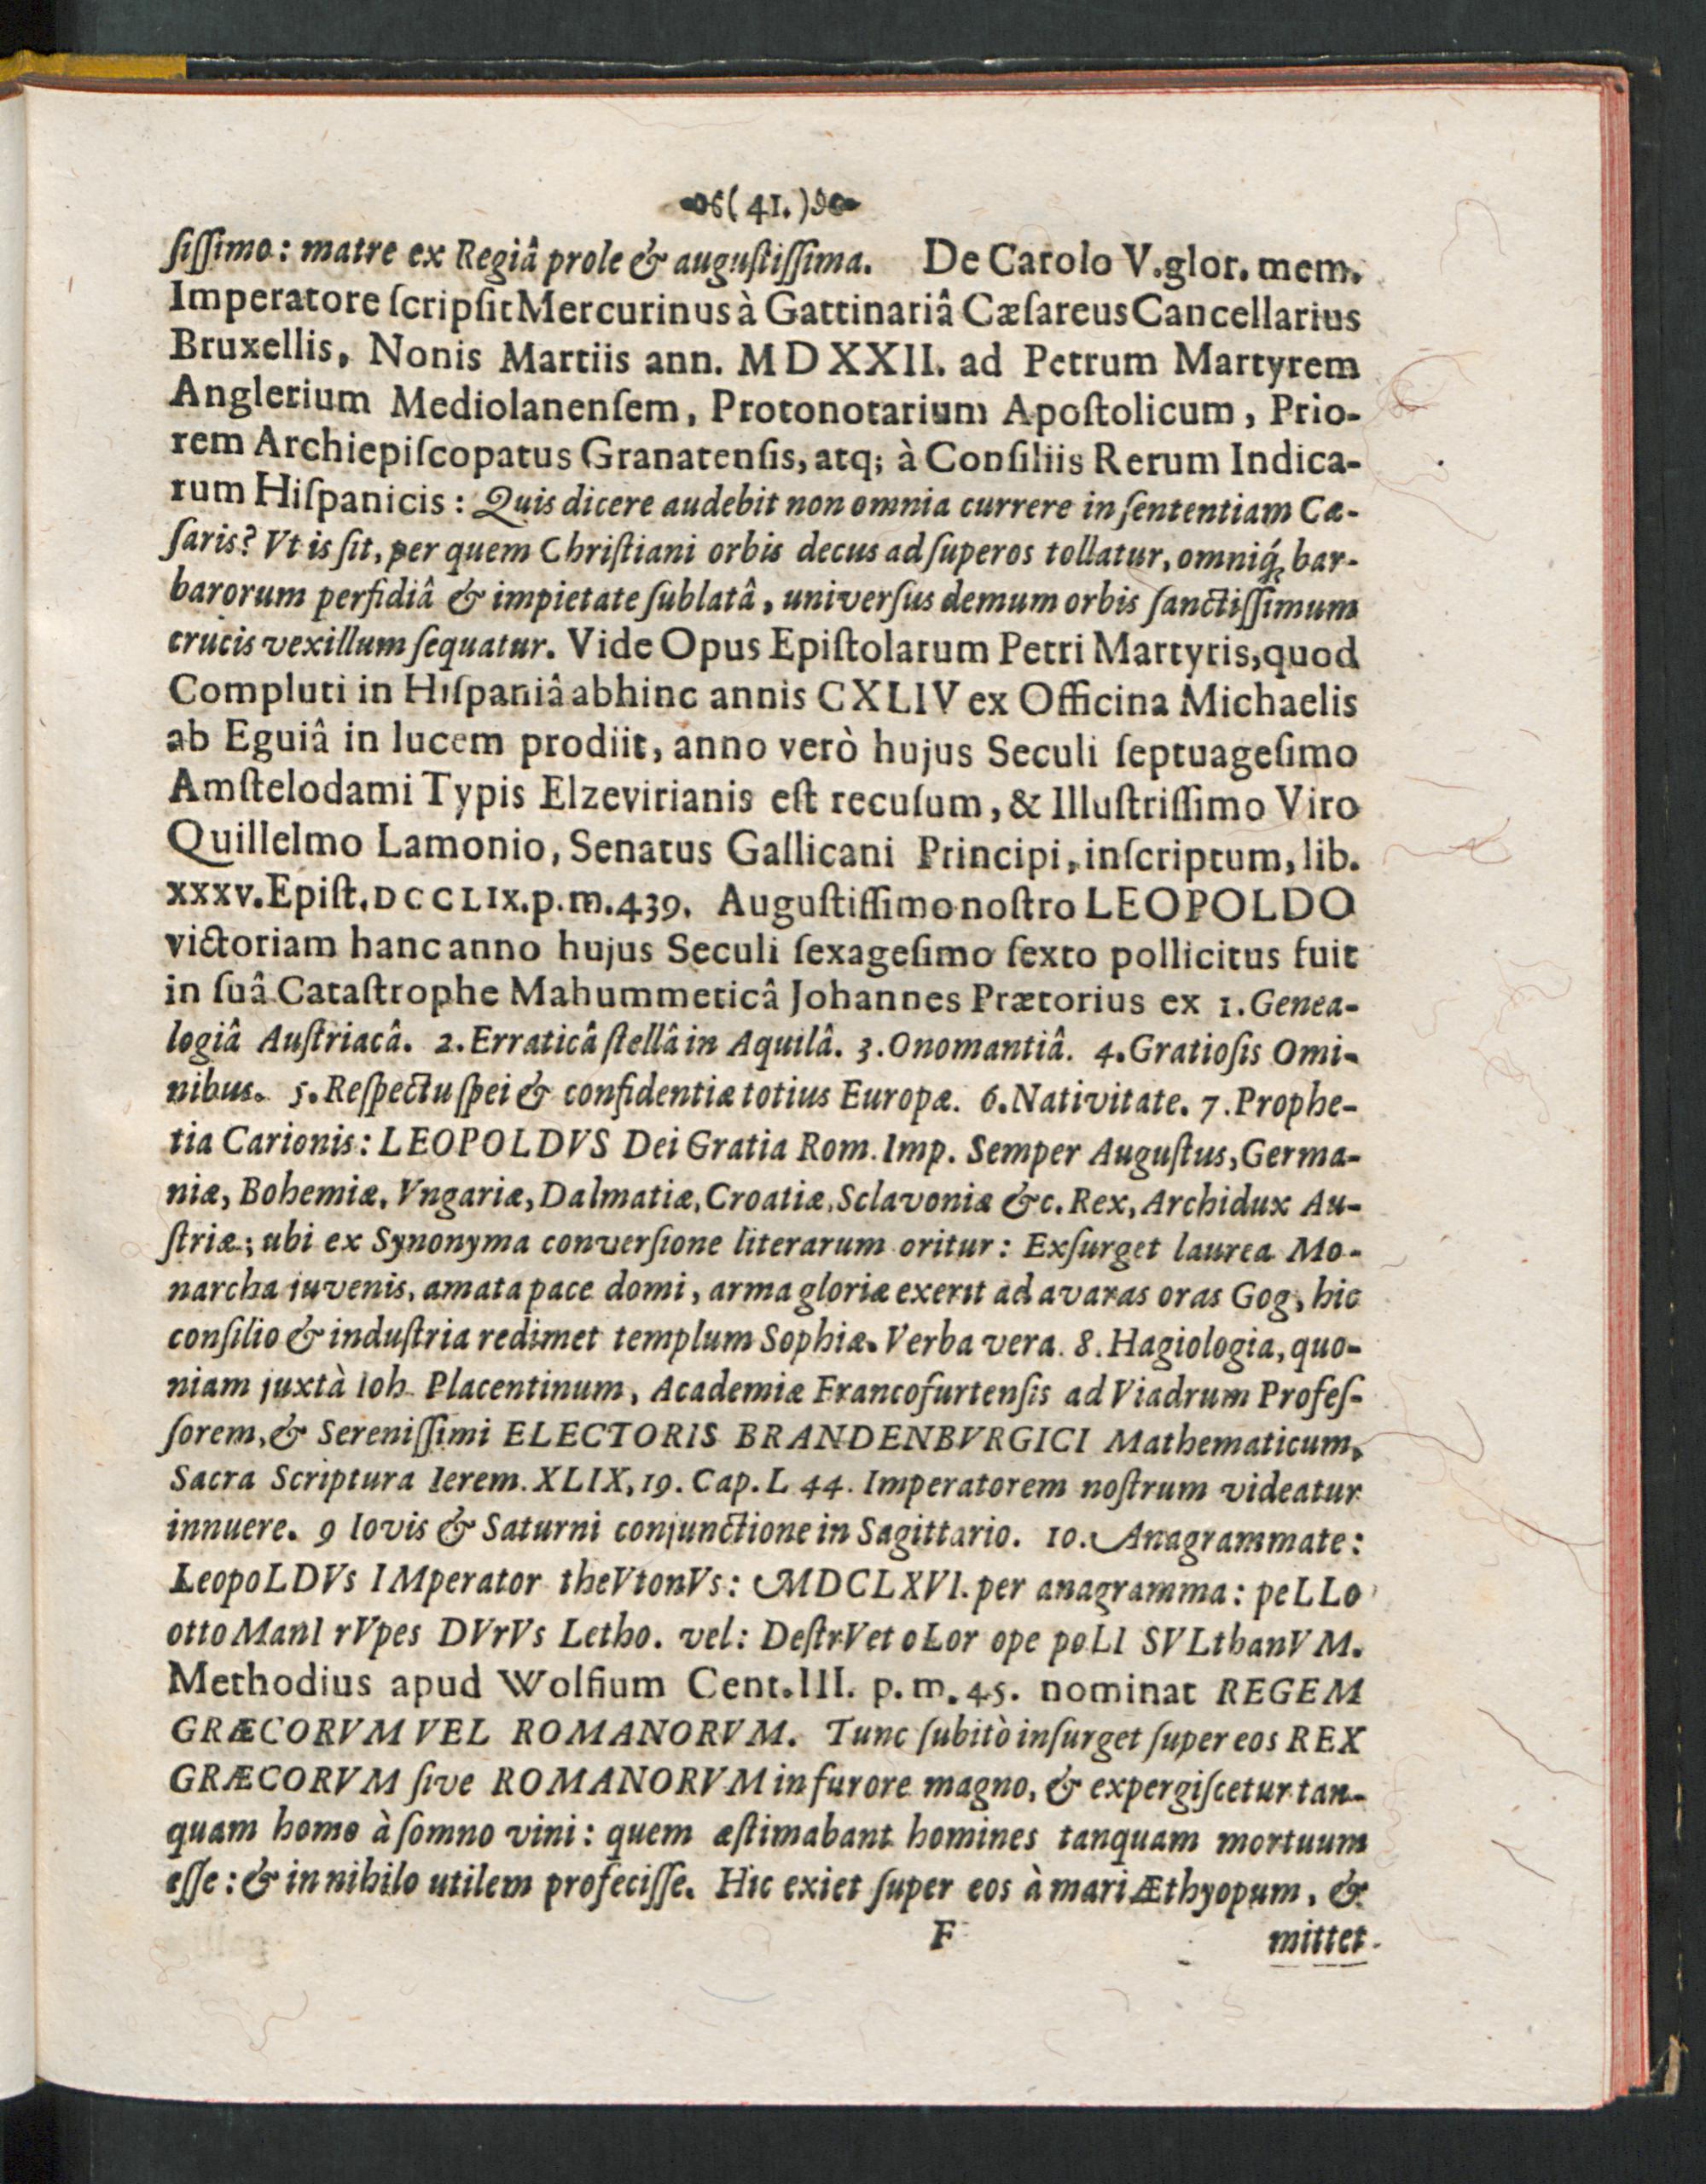 (41.)
ſiſſimo: matre ex Regiâ prole & auguſtiſſima. De Carolo V.glor. mem.
Imperatore ſcripſit Mercurinus à Gattinariâ Cæſareus Cancellarius
Bruxellis, Nonis Martiis ann. MDXXII. ad Petrum Martyrem
Anglerium Mediolanenſem, Protonotarium Apoſtolicum, Prio-
rem Archiepiſcopatus Granatenſis, atq; à Conſiliis Rerum Indica-
rum Hiſpanicis: Quis dicere audebit non omnia currere in ſententiam Cæ-
ſaris? Vt is ſit, per quem Chriſtiani orbis decus ad ſuperos tollatur, omniq́; bar-
barorum perfidiâ & impietate ſublatâ, univerſus demum orbis ſanctiſſimum
crucis vexillum ſequatur. Vide Opus Epiſtolarum Petri Martyris, quod
Compluti in Hiſpaniâ abhinc annis CXLIV ex Officina Michaelis
ab Eguiâ in lucem prodiit, anno verò hujus Seculi ſeptuageſimo
Amſtelodami Typis Elzevirianis eſt recuſum, & Illuſtriſſimo Viro
Quillelmo Lamonio, Senatus Gallicani Principi, inſcriptum, lib.
xxxv. Epiſt. DCCLIX. p. m. 439. Auguſtiſſimo noſtro LEOPOLDO
victoriam hanc anno hujus Seculi ſexageſimo ſexto pollicitus fuit
in ſuâ Cataſtrophe Mahummeticâ Johannes Prætorius ex 1. Genea-
logiâ Auſtriacâ. 2. Erraticâ ſtellâ in Aquilâ. 3. Onomantiâ. 4. Gratioſis Omi-
nibus. 5. Reſpectu ſpei & confidentiæ totius Europæ. 6. Nativitate. 7. Prophe-
tia Carionis: LEOPOLDVS Dei Gratia Rom. Imp. Semper Auguſtus, Germa-
niæ, Bohemiæ, Vngariæ, Dalmatiæ, Croatiæ, Sclavoniæ &c. Rex, Archidux Au-
ſtriæ; ubi ex Synonyma converſione literarum oritur: Exſurget laurea Mo-
narcha juvenis, amata pace domi, arma gloriæ exerit ad avaras oras Gog, hic
conſilio & induſtria redimet templum Sophiæ. Verba vera. 8. Hagiologia, quo-
niam juxtà Ioh. Placentinum, Academiæ Francofurtenſis ad Viadrum Profeſ-
ſorem, & Sereniſſimi ELECTORIS BRANDENBVRGICI Mathematicum,
Sacra Scriptura Ierem. XLIX, 19. Cap. L 44. Imperatorem noſtrum videatur
innuere. 9 Iovis & Saturni conjunctione in Sagittario. 10. Anagrammate:
LeopoLDVs IMperator theVtonVs: MDCLXVI. per anagramma: peLLo
ottoManI rVpes DVrVs Letho. vel: DeſtrVet oLor ope poLI SVLthanVM.
Methodius apud Wolfium Cent. III. p. m. 45. nominat REGEM
GRÆCORVM VEL ROMANORVM. Tunc ſubitò inſurget ſuper eos REX
GRÆCORVM ſive ROMANORVM in furore magno, & expergiſcetur tan-
quam homo à ſomno vini: quem æſtimabant homines tanquam mortuum
eſſe: & in nihilo utilem profeciſſe. Hic exiet ſuper eos à mari Æthyopum, &
F mittet